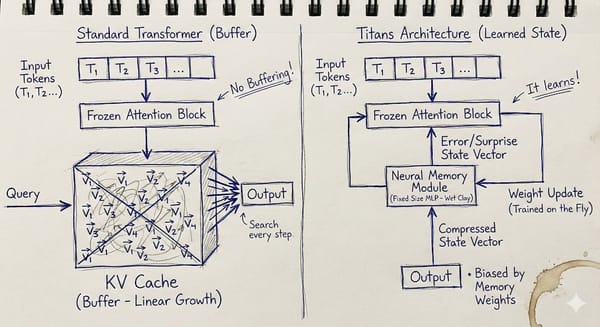 Standard Transformer (Buffer)
Input
Tokens
(T₁, T₂...)
T₁ T₂ T₃ ...
No Buffering!
Frozen Attention Block
Query
V₁ V₁ V₂ V₄
V₂ V₁ V₂
V₁ V₁ V₁
V₃ V₄ V₁ V₂
V₁ V₂ V₄
Output
Search
every step
KV Cache
(Buffer – Linear Growth)
Titans Architecture (Learned State)
Input
Tokens
(T₁, T₂...)
T₁ T₂ T₃ ...
It learns!
Frozen Attention Block
Error/Surprise
State Vector
Neural Memory
Module
(Fixed Size MLP – Wet Clay)
Weight Update
(Trained on the Fly)
Compressed
State Vector
Output
• Biased by
Memory
Weights